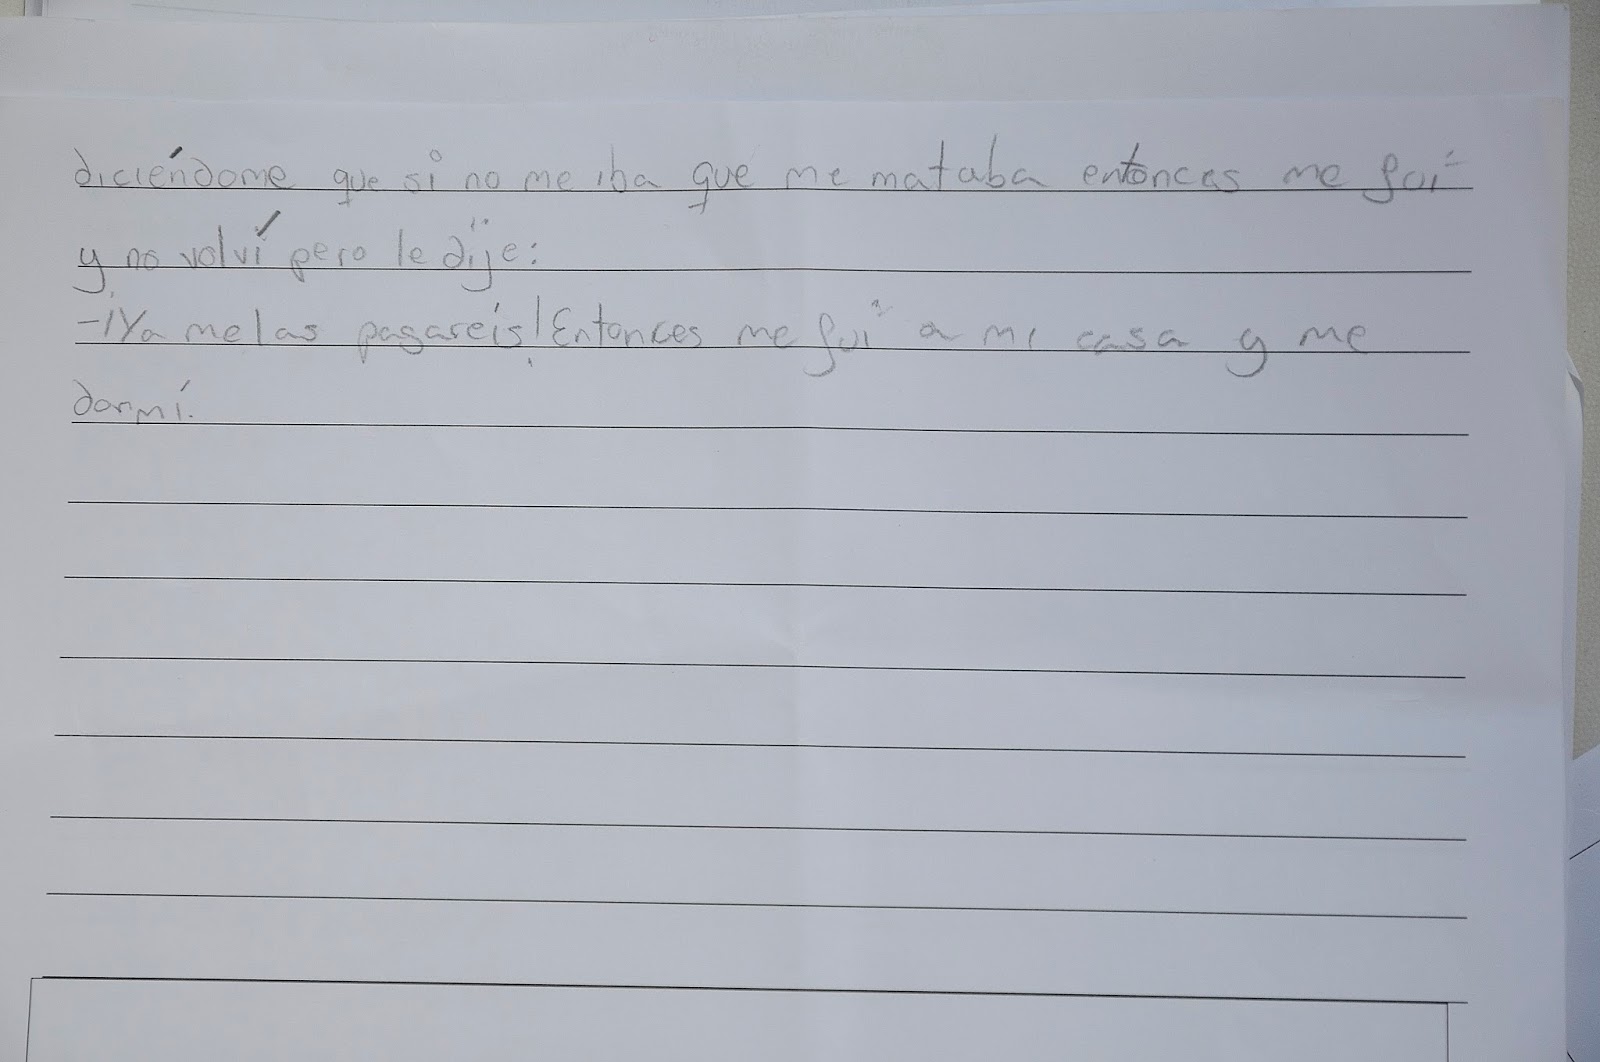 diciéndome que si no me iba que me mataba entonces me fui
y no volví pero le dije:
-¡Ya me las pagareís! Entonces me fui a mi casa y me
dormí.